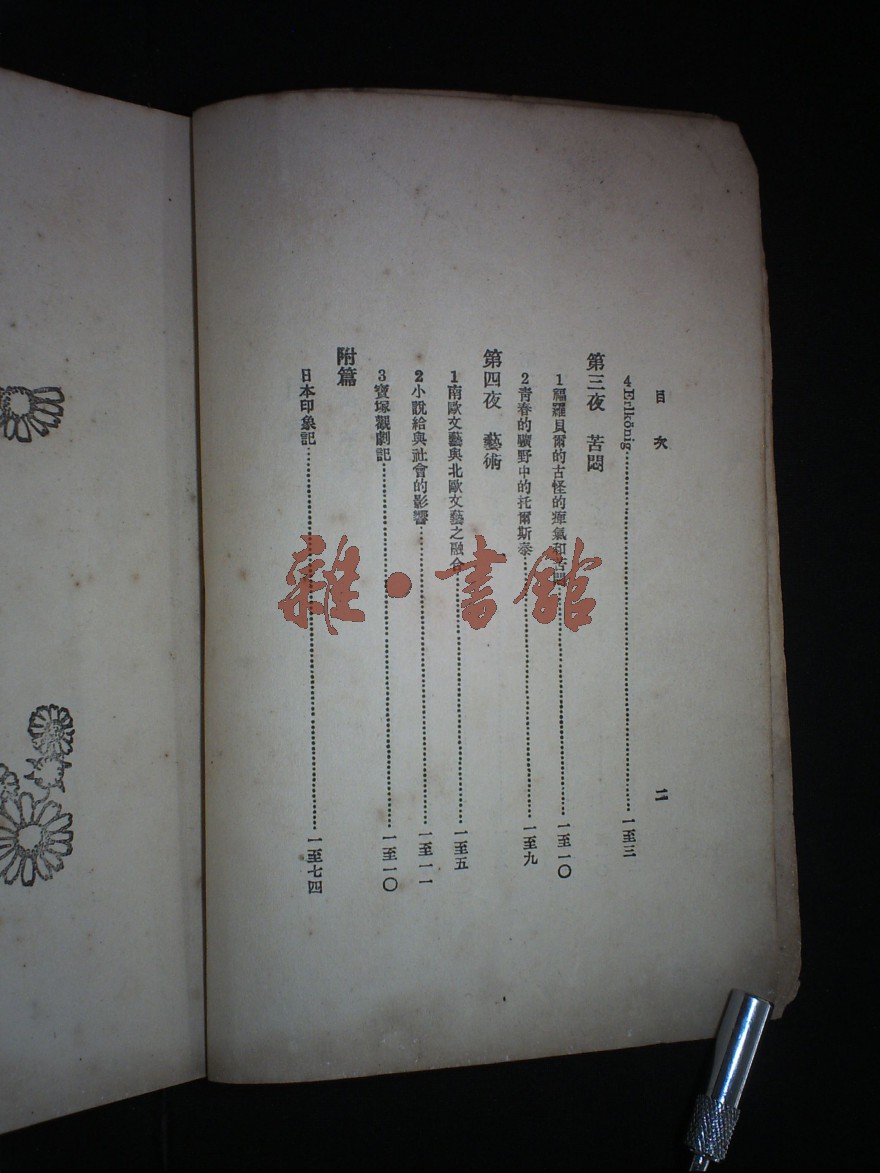 目次
二
4 Erlkönig 一至三
第三夜 苦悶
1 福羅貝爾的古怪的瘴氣和苦悶 一至一〇
2 青春的曠野中的托爾斯泰 一至九
第四夜 藝術
1 南歐文藝與北歐文藝之融合 一至五
2 小說給與社會的影響 一至一一
3 寶塚觀劇記 一至一〇
附篇
日本印象記 一至七四
雜·書館